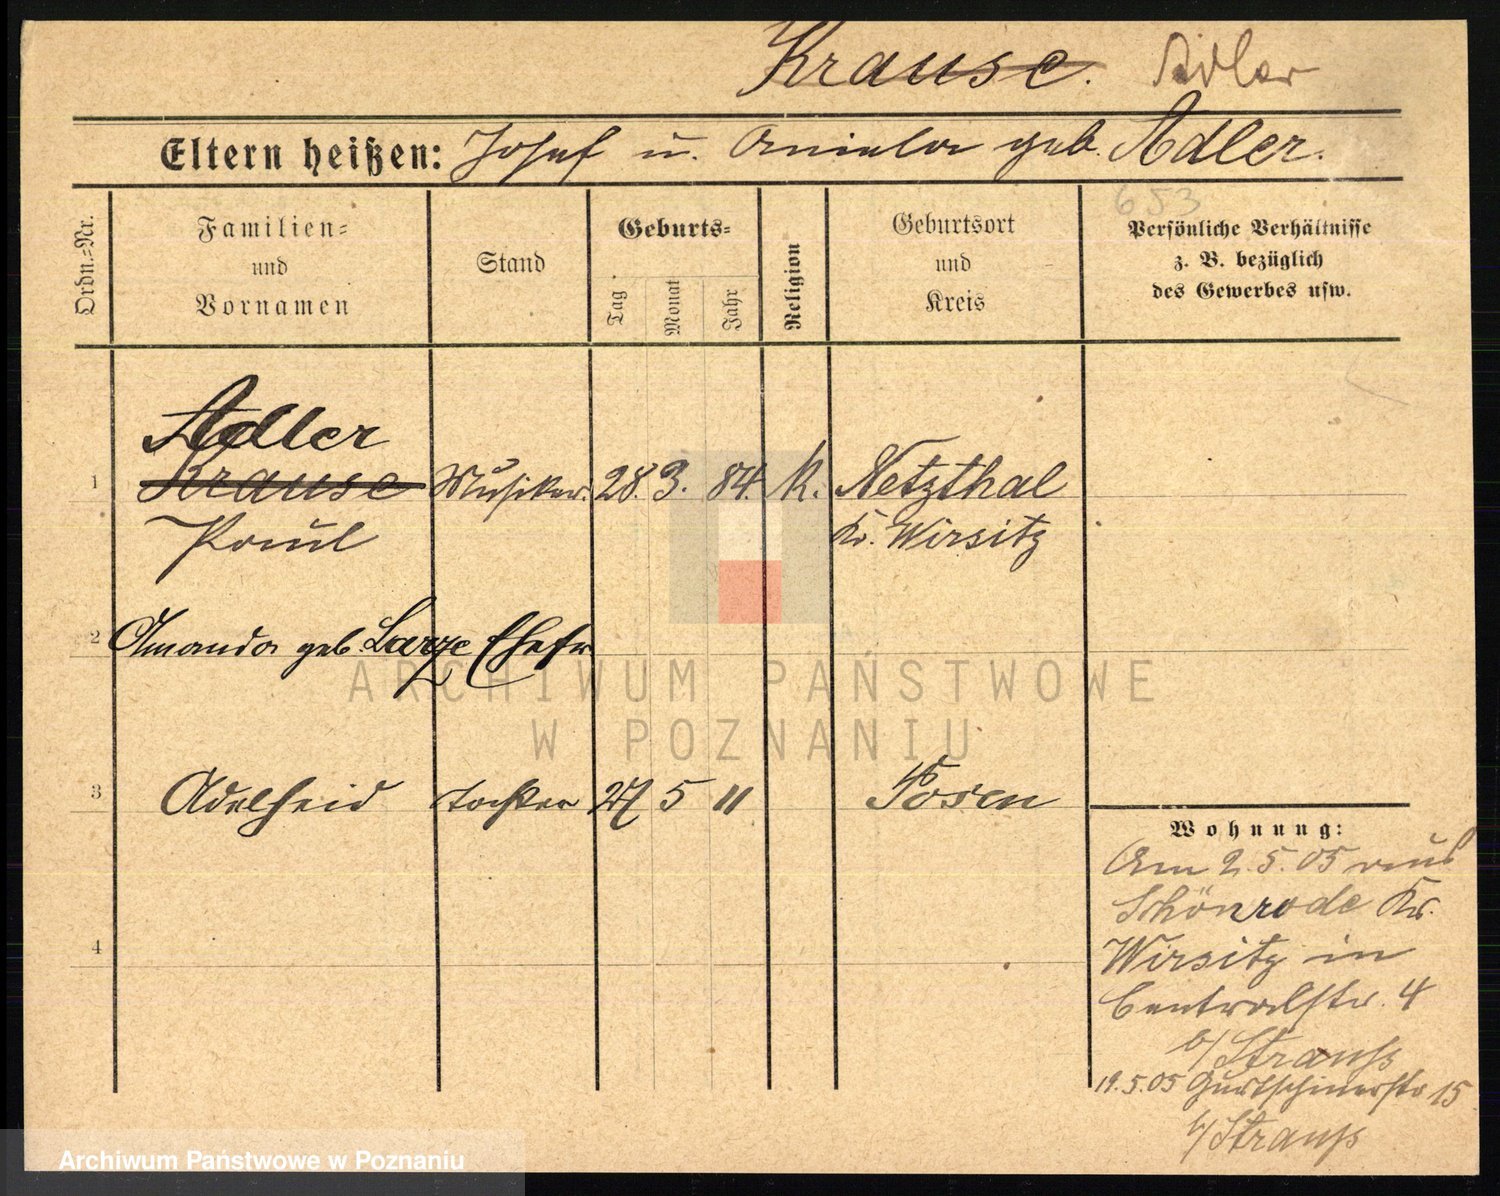 Krause. Adler
Eltern heißen: Josef u. Aniela geb. Adler.
653
Ordn.=Nr.
Familien=
und
Vornamen
Stand
Geburts=
Tag
Monat
Jahr
Religion
Geburtsort
und
Kreis
Persönliche Verhältnisse
z. B. bezüglich
des Gewerbes usw.
Adler
1 Krause Musiker. 28. 3. 84. K. Netzthal
Paul Kr. Wirsitz
2 Amanda geb. Ehefr
ARCHIWUM PAŃSTWOWE
W POZNANIU
3 Adelheid tochter 27 5 11 Posen
4
Wohnung:
Am 2.5.05 aus
Schönrode Kr.
Wirsitz in
Centralstr. 4
b/Strauß
19.5.05 Gurtschinerstr 15
b/Strauß
Archiwum Państwowe w Poznaniu